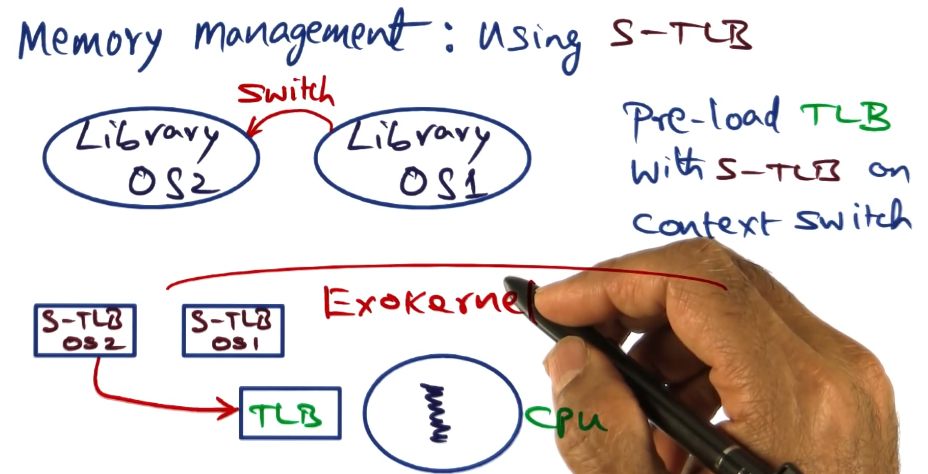 Memory management: Using S-TLB
Switch
Library OS2
Library OS1
Pre-load TLB
with S-TLB on
context switch
Exokernel
S-TLB
OS2
S-TLB
OS1
TLB
CPU